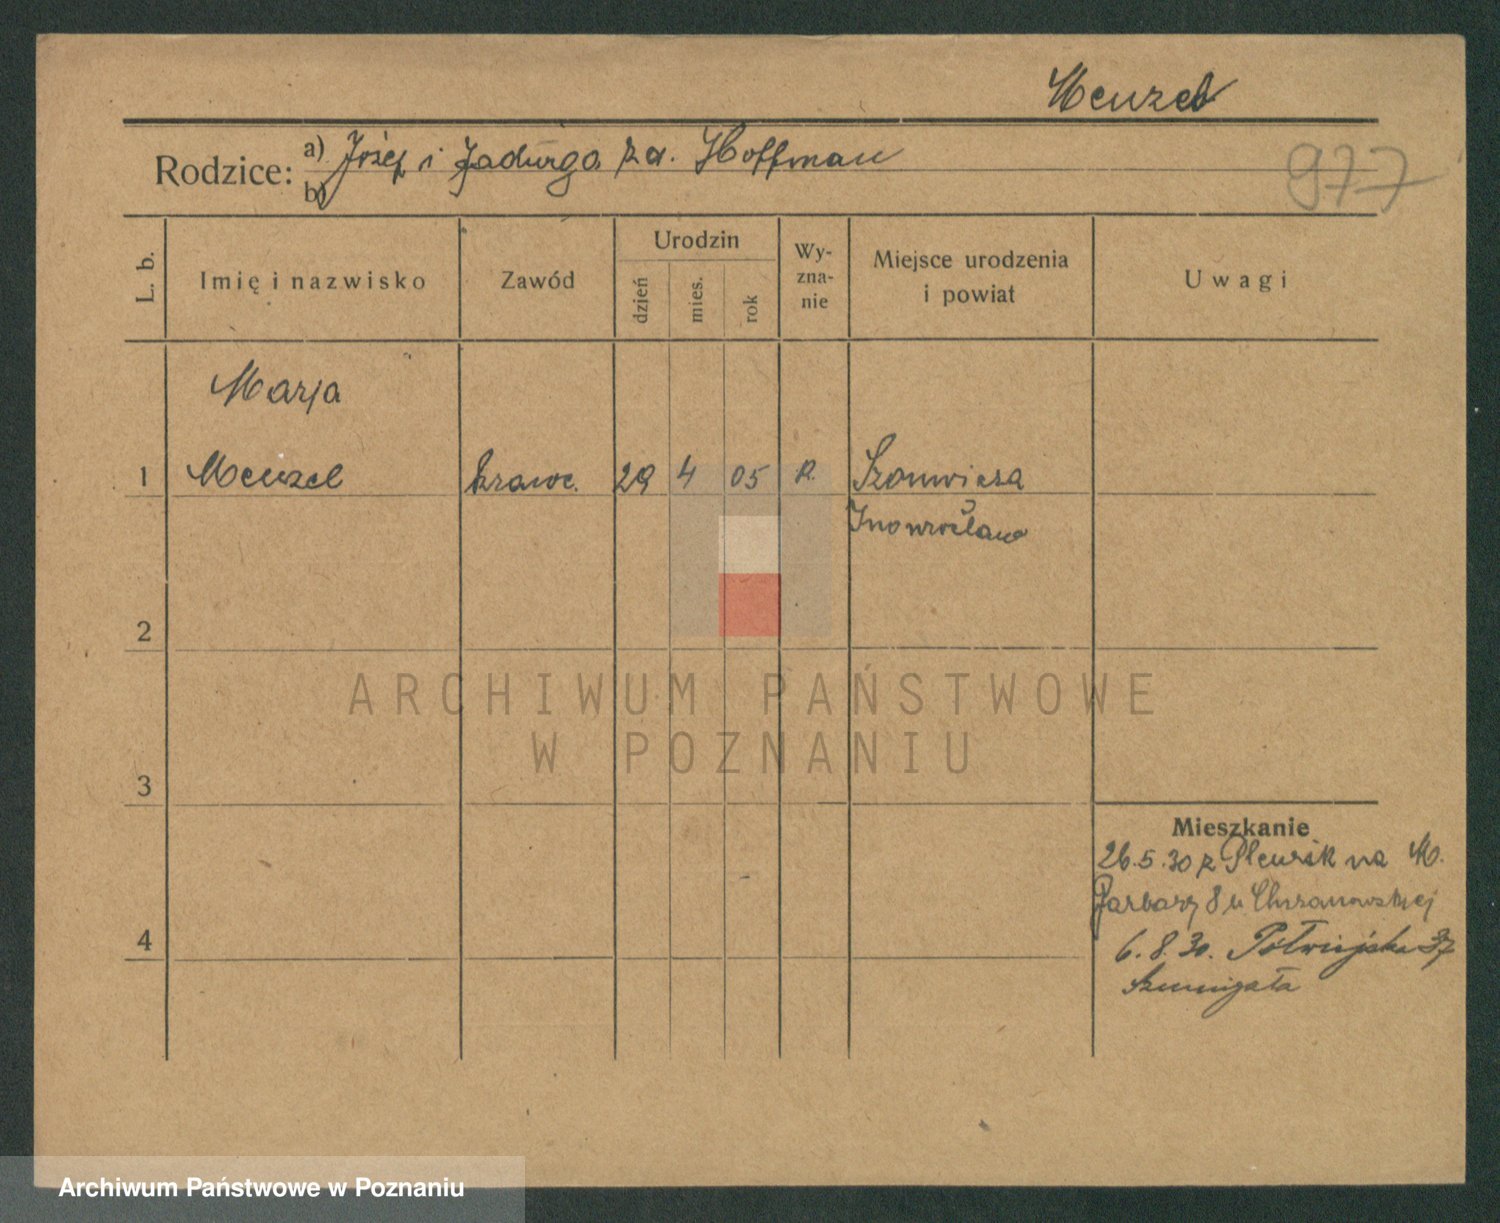 Menzel
Rodzice: a) Józef i Jadwiga z d. Hoffman
b)
977
L. b.
Imię i nazwisko
Zawód
Urodzin
dzień
mies.
rok
Wy-
zna-
nie
Miejsce urodzenia
i powiat
Uwagi
Marja
1 Menzel krawc. 29 4 05 R.
Inowrocław
2
ARCHIWUM PAŃSTWOWE
W POZNANIU
3
Mieszkanie
26.5.30 z na M.
Garbary 8 u Chrzanowskiej
4
6.8.30. Półwiejska 37
Szmigała
Archiwum Państwowe w Poznaniu